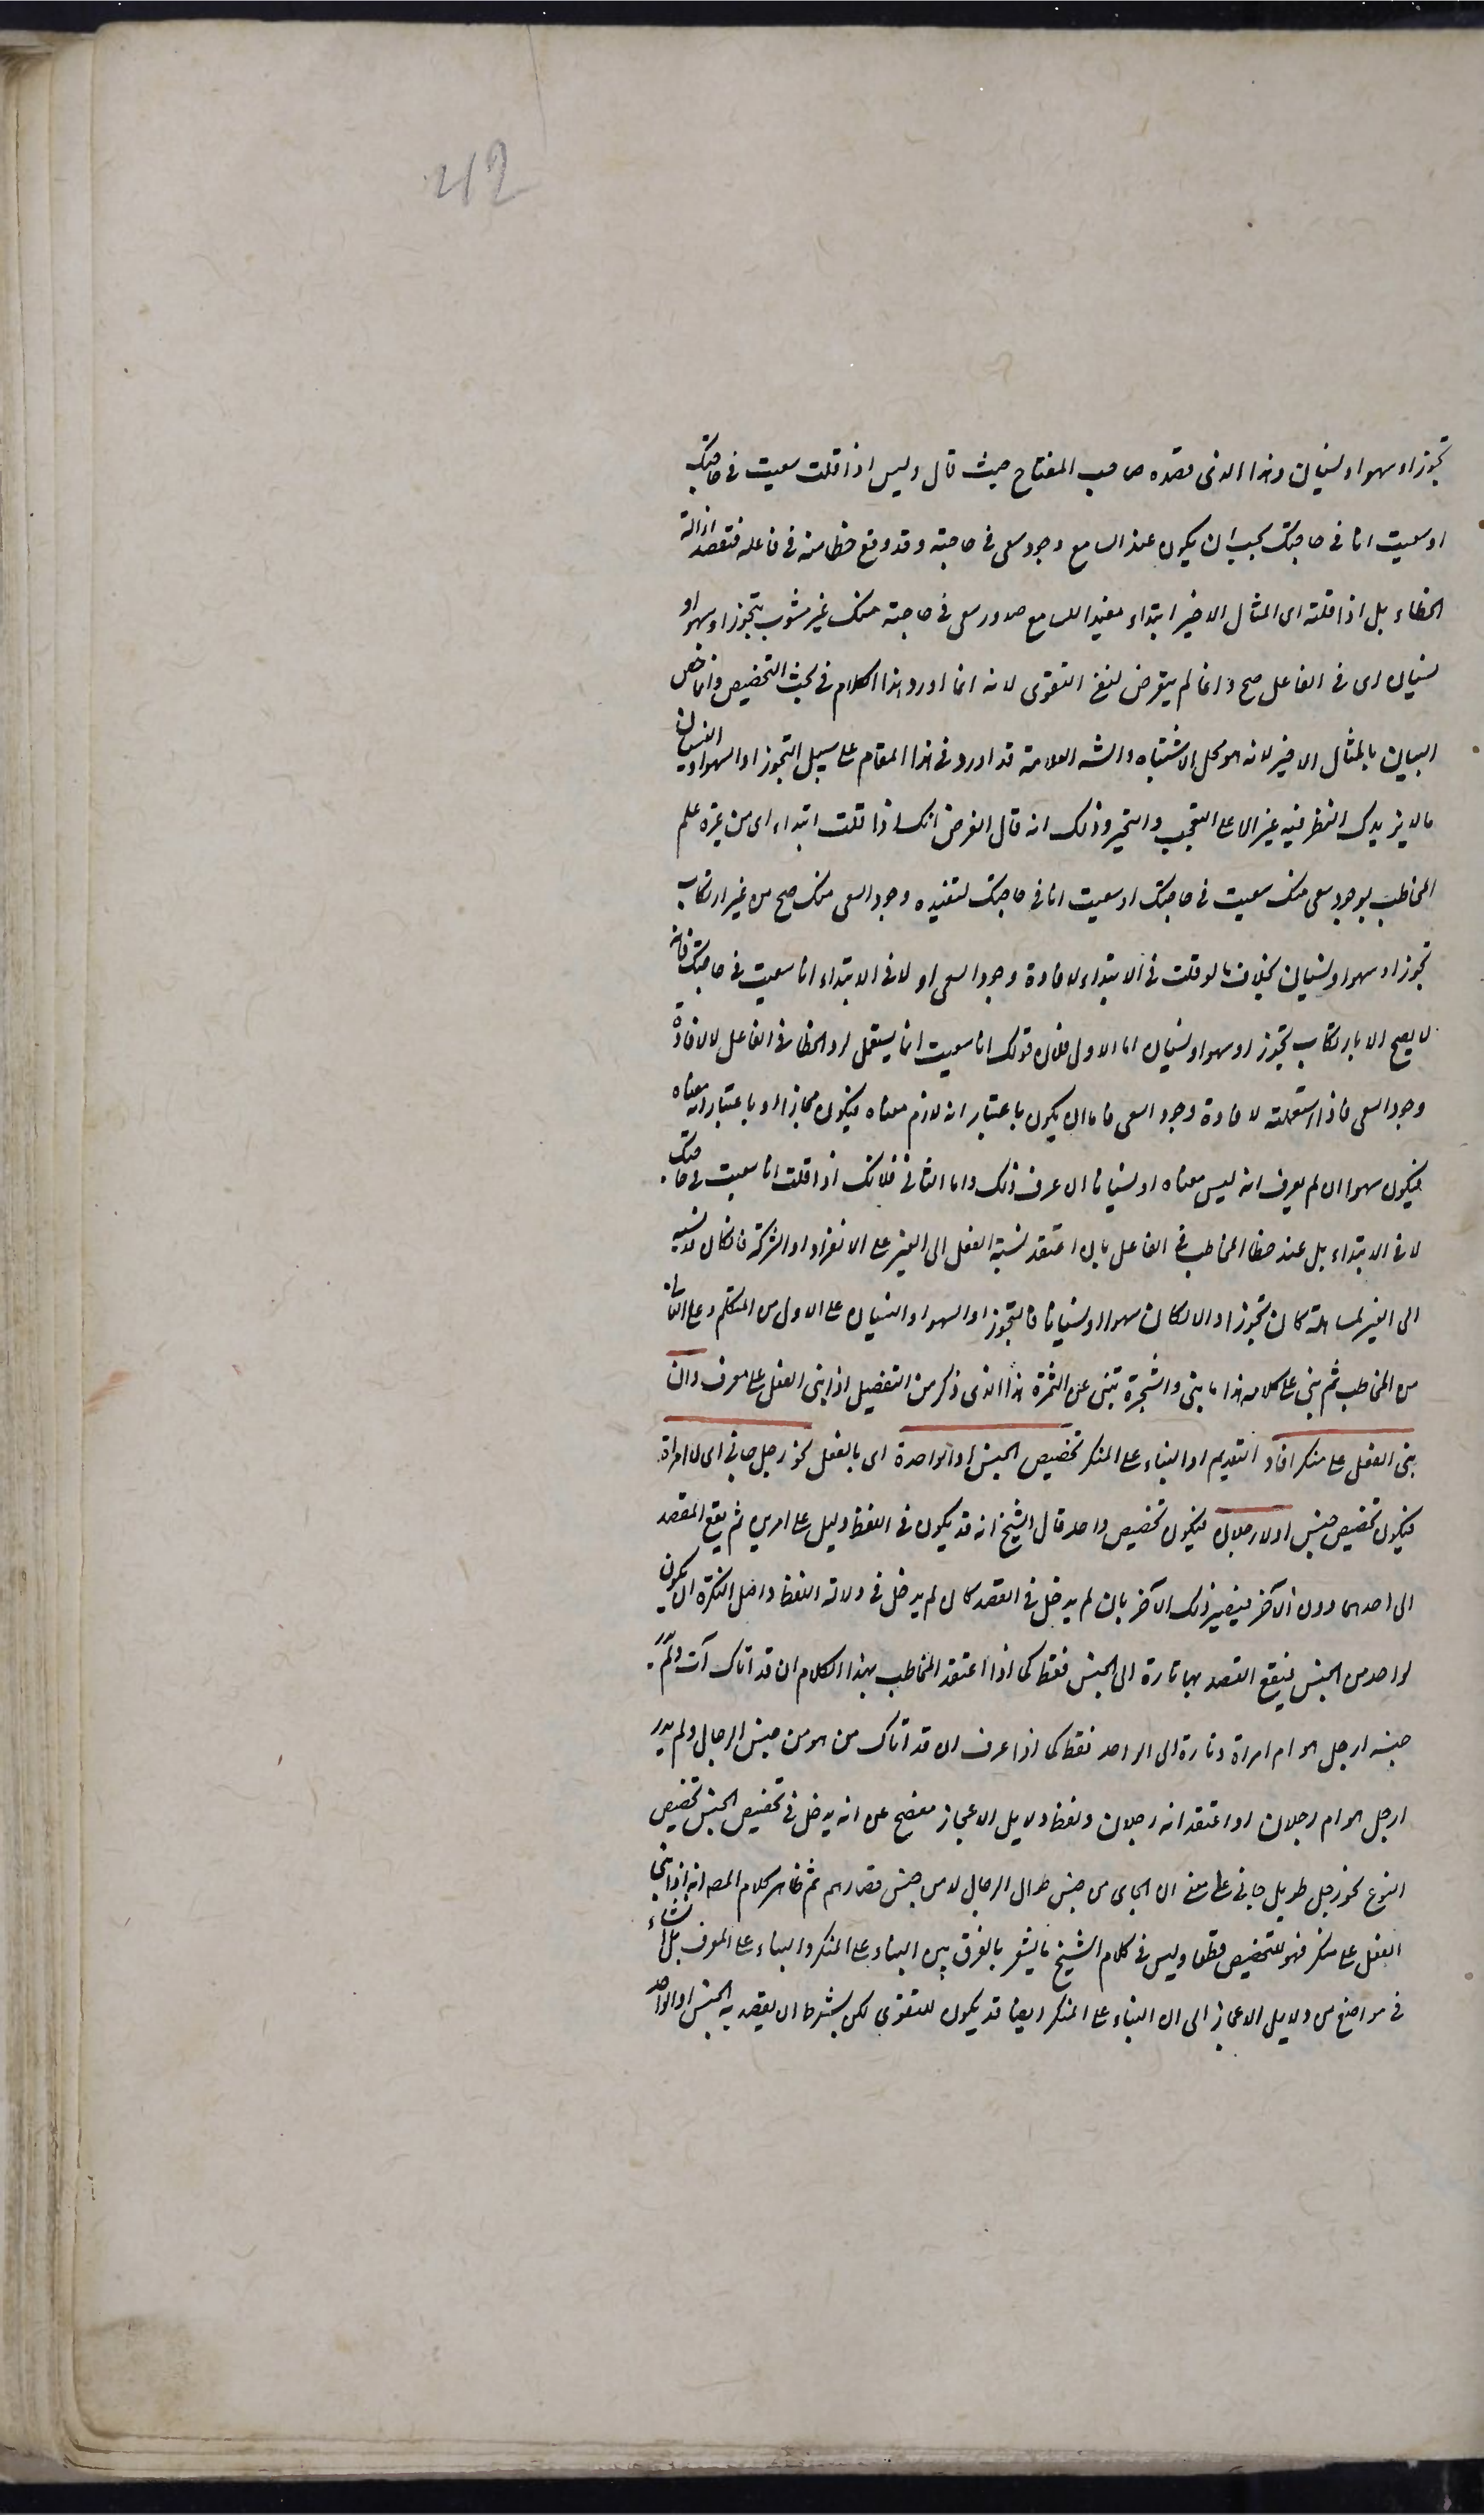 42
تجوز او سهو او نسيان وهذا الذى قصده صاحب المفتاح حيث قال وليس اذا قلت سعيت فى حاجتك
او سعيت انا فى حاجتك يجب ان يكون عند السامع وجود سعى فى حاجته وقد وقع خطا منه فى فاعله فتقصد ازالة
الخطاء بل اذا قلته اى المثال الاخير ابتداء مفيدا للسامع صدور سعى فى حاجته منك غير مشوب بتجوز او سهو او
نسيان اى فى الفاعل صح وانما لم يتعرض لنفى التقوى لانه انما اورد هذا الكلام فى بحث التخصيص وانما خص
البيان بالمثال الاخير لانه هو محل الاشتباه والشه العلامة قد اورد فى هذا المقام على سبيل التجوز او السهو او النسيان
ما لا يزيدك النظر فيه غير الا على التعجب والتحير وذلك انه قال الغرض انك اذا قلت ابتداء اى من غير علم
المخاطب بوجود سعى منك سعيت فى حاجتك او سعيت انا فى حاجتك لتفيده وجود السعى منك صح من غير ارتكاب
تجوز او سهو او نسيان بخلاف ما لو قلت فى الابتداء لافادة وجود السعى او لا فى الابتداء انا سعيت فى حاجتك فانه
لا يصح الا بارتكاب تجوز او سهو او نسيان اما الاول فلان قولك انا سعيت انما يستعمل لرد الخطا فى الفاعل لا لافادة
وجود السعى فاذا استعملته لافادة وجود السعى فاما ان يكون باعتبار انه لازم معناه فيكون مجازا او باعتبار انه معناه
فيكون سهوا ان لم يعرف انه ليس معناه او نسيانا ان عرف ذلك واما الثانى فلانك اذا قلت انا سعيت فى حاجتك
لا فى الابتداء بل عند خطا المخاطب فى الفاعل بان اعتقد نسبة الفعل الى الغير على الانفراد او الشركة فان كان نسبه
الى الغير لمساهلة كان تجوزا والا لكان سهوا او نسيانا فالتجوز او السهو او النسيان على الاول من المتكلم وعلى الثانى
من المخاطب ثم بنى على كلامه هذا ما بنى والشجرة تنبى عن الثمرة هذا الذى ذكر من التفصيل اذا بنى الفعل على معرف وان
بنى الفعل على منكر افاد التقديم او البناء على المنكر تخصيص الجنس او الواحد ة اى بالفعل نحو رجل جانى اى لا امراة
فيكون تخصيص جنس او لا رجلان فيكون تخصيص واحد قال الشيخ انه قد يكون فى اللفظ دليل على امرين ثم يقع القصد
الى احدهما دون الآخر فيصير ذلك الآخر بان لم يدخل فى القصد كان لم يدخل فى دلالة اللفظ واصل النكرة ان يكون
لواحد من الجنس فيقع القصد بها تارة الى الجنس فقط كما اذا اعتقد المخاطب بهذا الكلام ان قد اتاك آت ولم يدر
جنسه ارجل هو ام امراة وتارة الى الواحد فقط كما اذا عرف ان قد اتاك من هو من جنس الرجال ولم يدر
ارجل هو ام رجلان او اعتقد انه رجلان ولفظ دلايل الاعجاز مفصح عن انه يدخل فى تخصيص الجنس تخصيص
النوع نحو رجل طويل جانى على معنى ان الجاى من جنس طوال الرجال لا من جنس قصارهم ثم ظاهر كلام المصه انه اذا بنى
الفعل على منكر فهو للتخصيص قطعا وليس فى كلام الشيخ ما يشعر بالفرق بين البناء على المنكر والبناء على المعرف بل اشار
فى مواضع من دلايل الاعجاز الى ان البناء على المنكر ايضا قد يكون للتقوى لكن بشرط ان يقصد به الجنس او الواحد